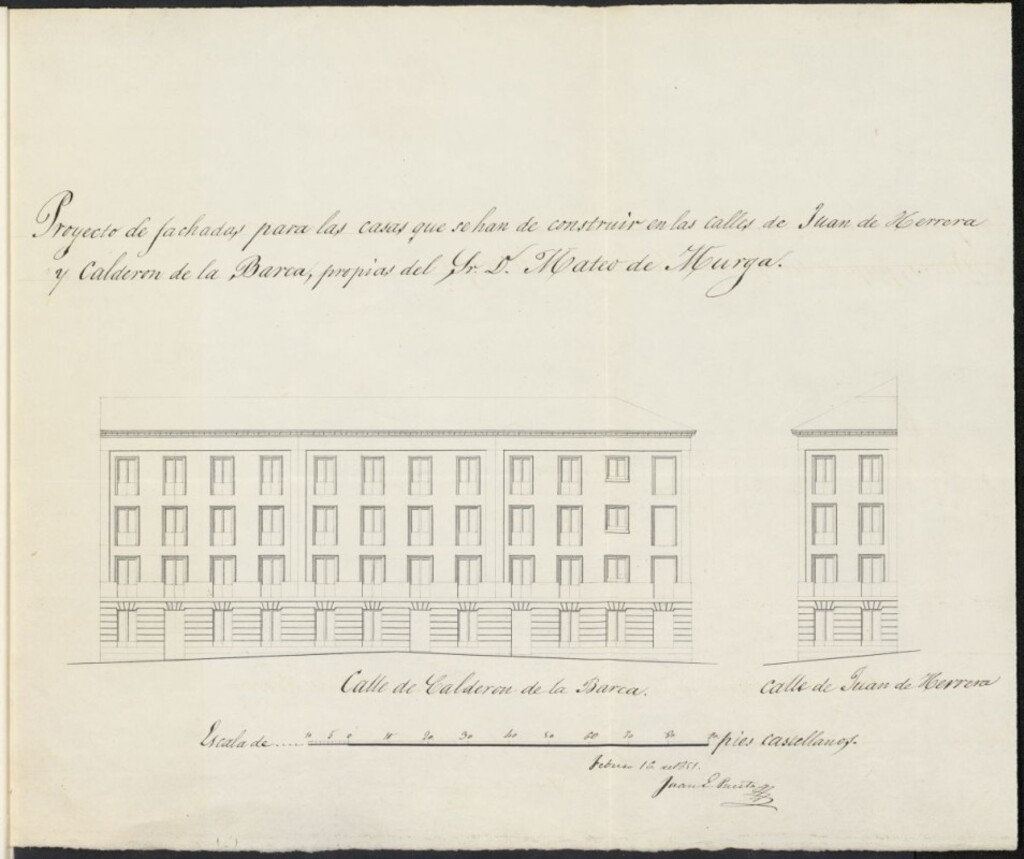 Proyecto de fachadas para las casas que se han de construir en las calles de Juan de Herrera
y Calderon de la Barca, propias del Sr. D. Mateo de Murga.
Calle de Calderon de la Barca.
calle de Juan de Herrera
Escala de..... 10 5 0 10 20 30 40 50 60 70 80 90 pies castellanos.
Febrero 12
Juan